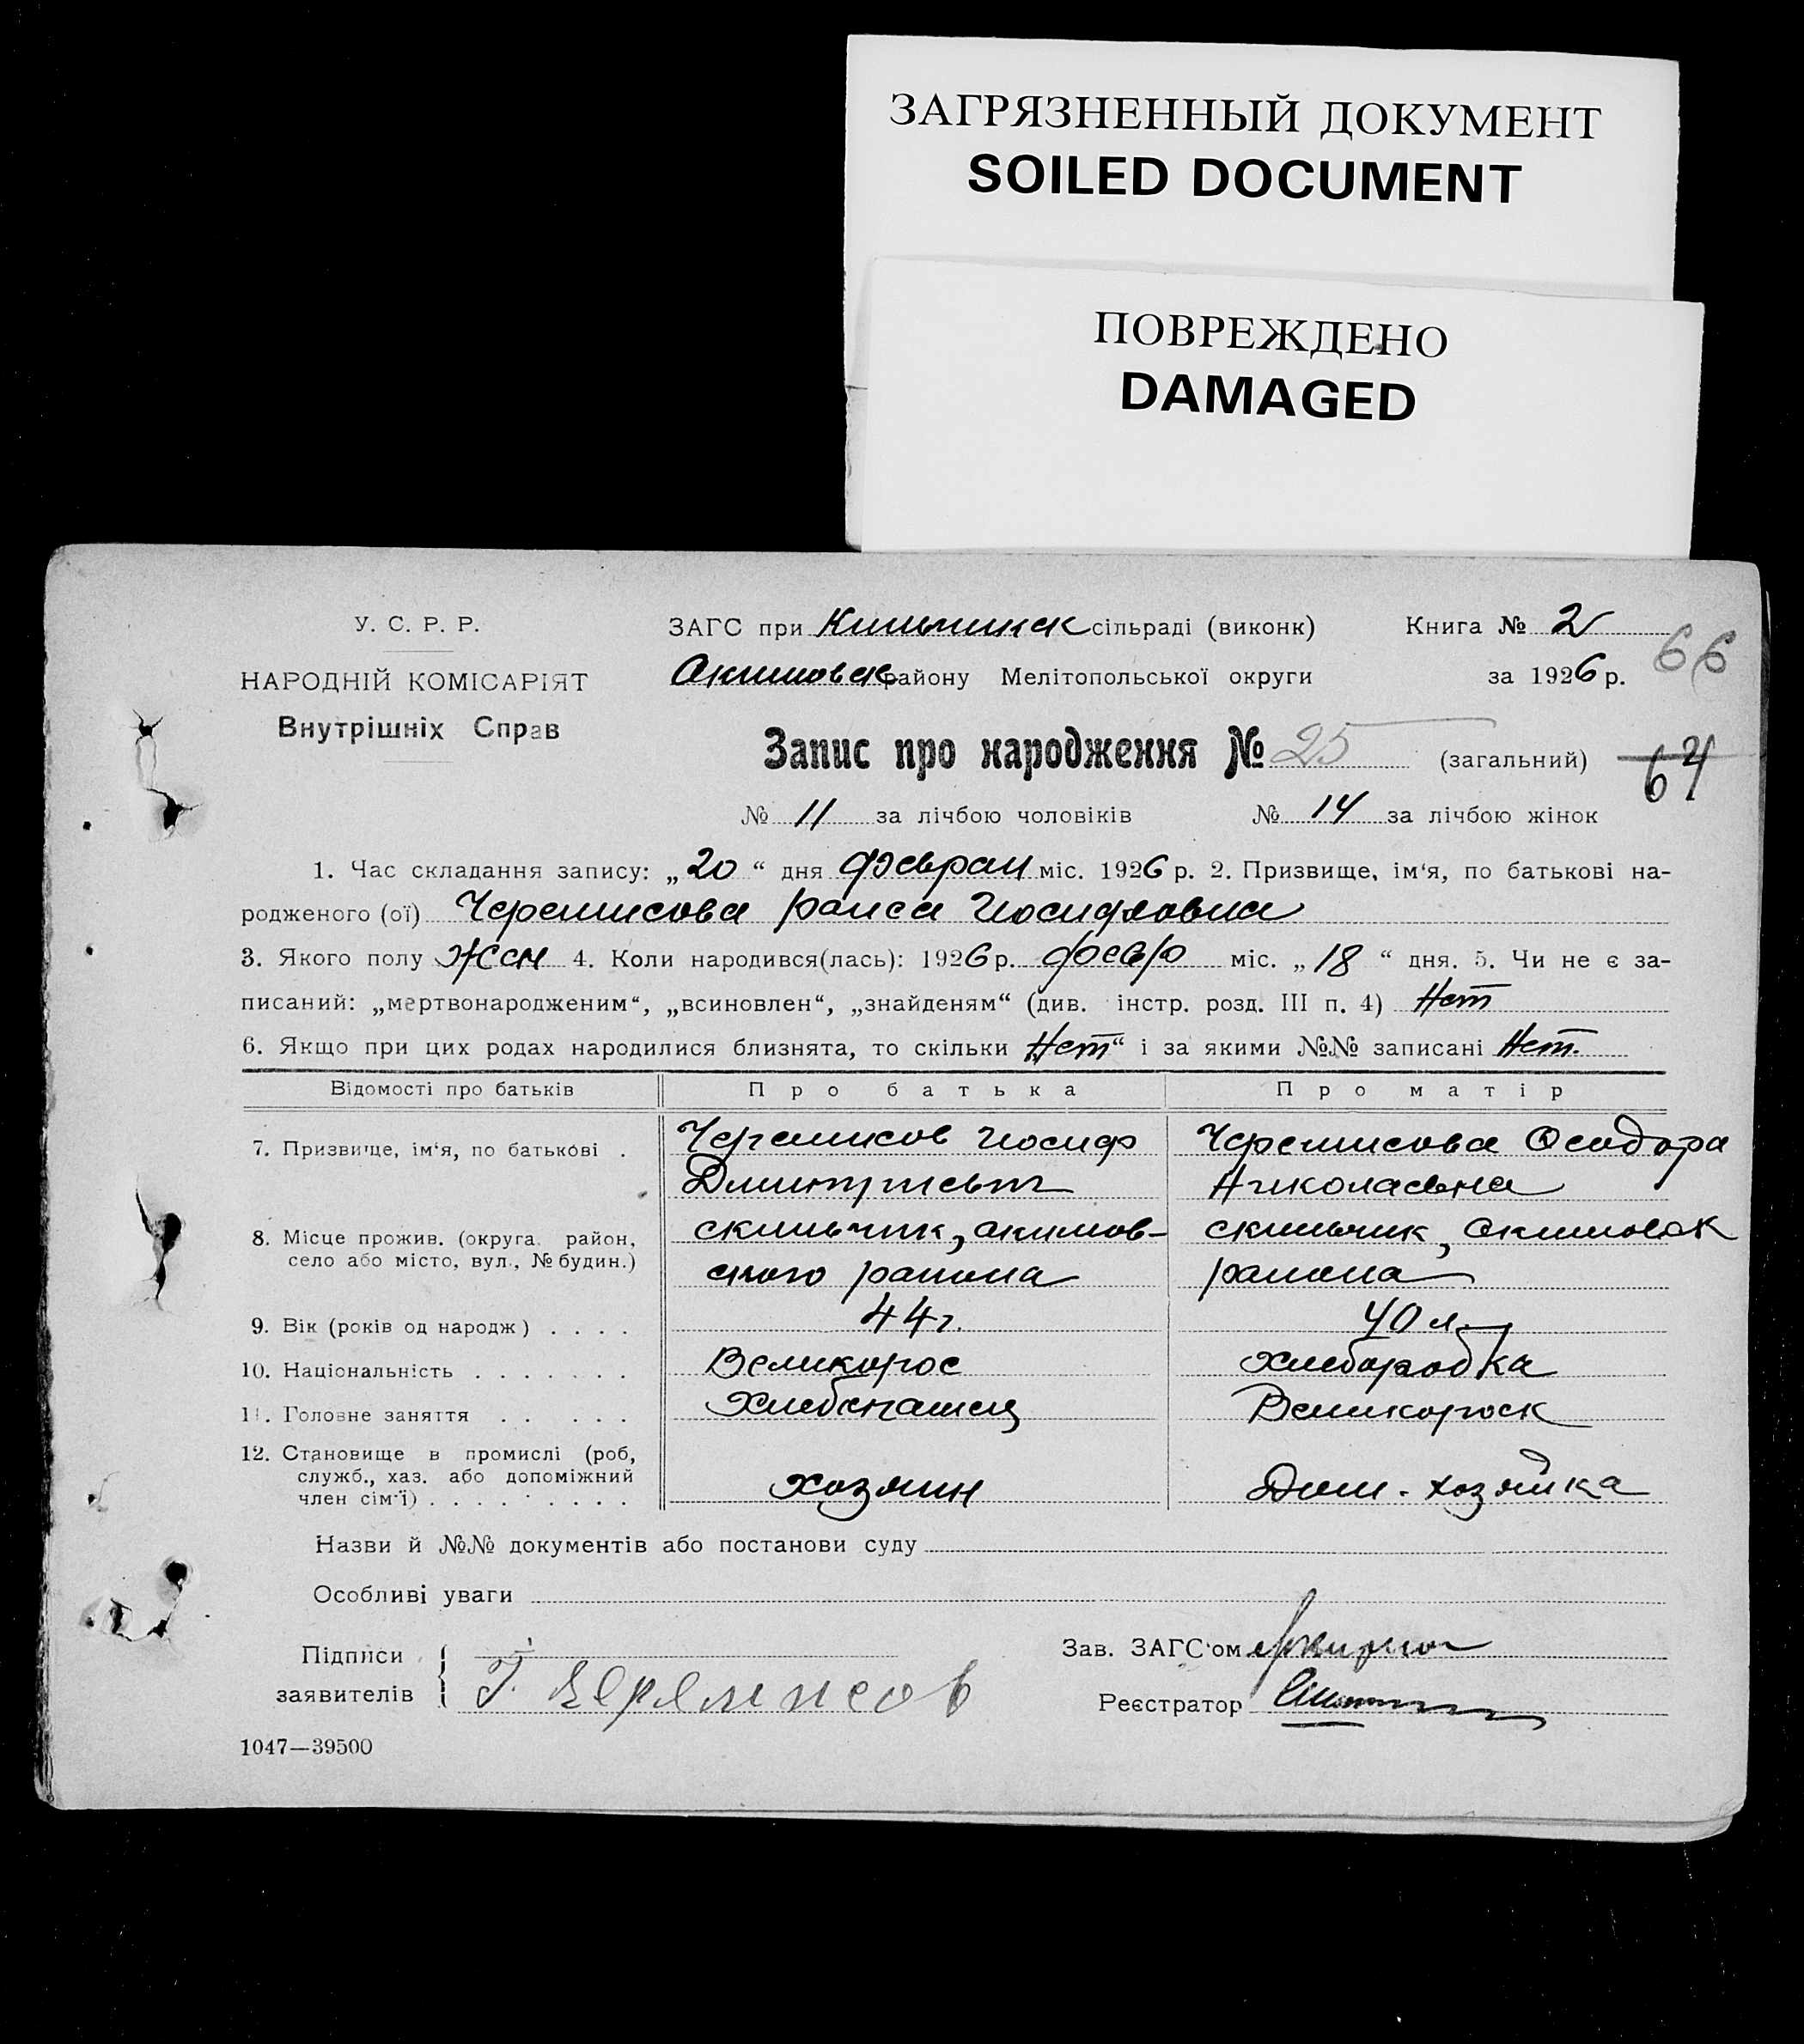 ЗАГРЯЗНЕННЫЙ ДОКУМЕНТ
SOILED DOCUMENT
ПОВРЕЖДЕНО
DAMAGED
У. С. Р. Р.
НАРОДНІЙ КОМІСАРІЯТ
Внутрішніх Справ
ЗАГС при Кильчинск сільраді (виконк) Книга № 2
66
Акимовск району Мелітопольської округи за 1926 р.
Запис про народження № 25 (загальний)
64
№ 11 за лічбою чоловіків № 14 за лічбою жінок
1. Час складання запису: „20“ дня феврал міс. 1926 р. 2. Призвище, ім‘я, по батькові на-
родженого (ої) Черемисова Раиса Иосифовна
3. Якого полу жен 4. Коли народився(лась): 1926 р. февр міс. „18“ дня. 5. Чи не є за-
писаний: „мертвонародженим“, „всиновлен“, „знайденям“ (див. інстр. розд. III п. 4) Нет
6. Якщо при цих родах народилися близнята, то скільки „Нет“ і за якими №№ записані Нет.
Відомості про батьків Про батька Про матір
7. Призвище, ім‘я, по батькові . Черемисов Иосиф Черемисова Феодора
Дмитриевич Николаевна
8. Місце прожив. (округа, район, скильчик, акимов- скильчик, акимовск
село або місто, вул., № будин.) ского раиона раиона
9. Вік (років од народж) . . . . 44 г. 40 л.
10. Національність . . . . . . . Великорос хлеборобка
11. Головне заняття . . . . . Хлебопашец Великороск
12. Становище в промислі (роб,
служб., хаз. або допоміжний хозяин Дом. хозяйка
член сім‘ї) . . . . . . . . .
Назви й №№ документів або постанови суду
Особливі уваги
Підписи
заявителів Черемисов
Зав. ЗАГС‘ом
Реєстратор
1047—39500